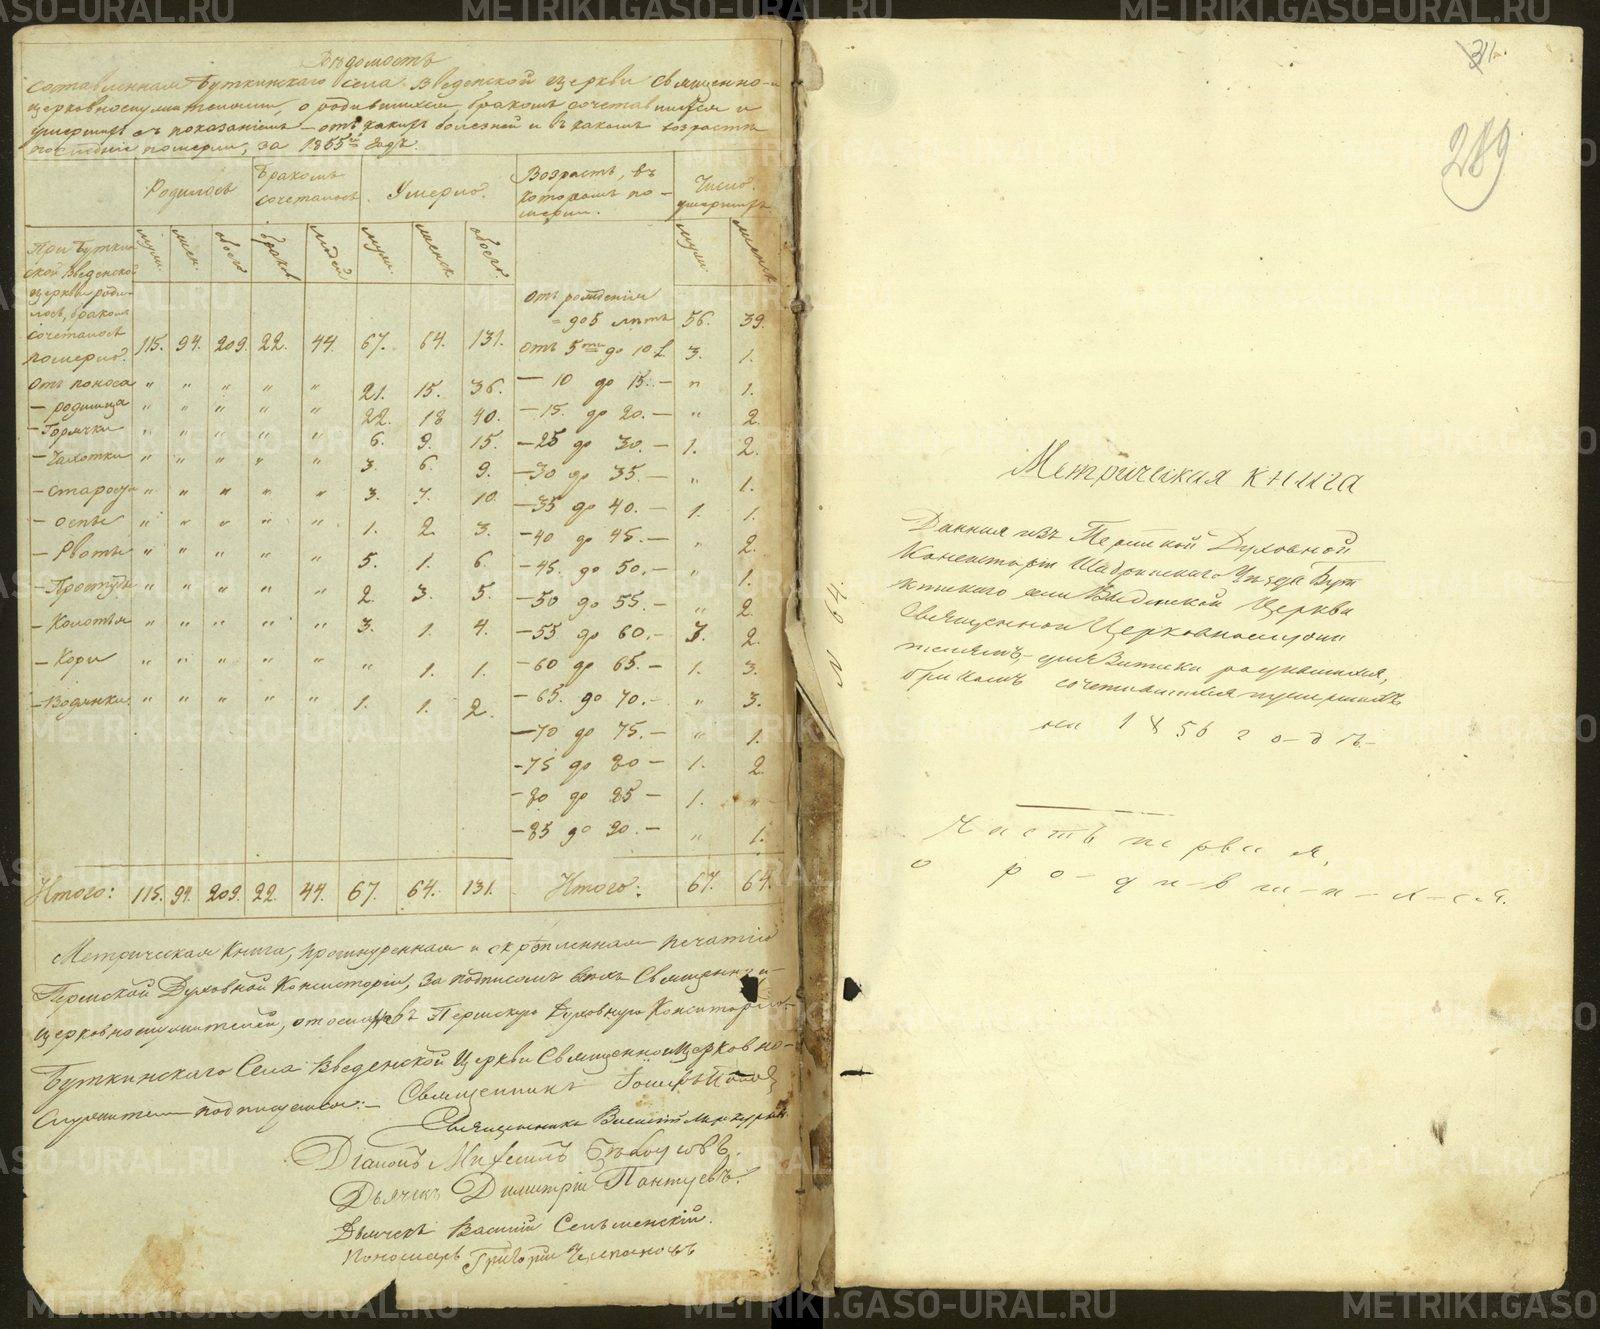 Вѣдомость
составленная Буткинскаго села Введенской церкви Священно-
церковнослужителями, о родившихся, бракомъ сочетавшихся и
умершихъ съ показаніемъ – отъ какихъ болезней и въ какомъ возрастѣ
последніе померли, за 1855й годъ.
Родилось Бракомъ сочеталось Умерло. Возрастъ, въ котором померли. Число умершихъ
муж. жен. обоего браков людей муж. женск обоего муж. женск
При Буткин
ской Введенской
церкви роди-
лось, браком
сочеталось
померло. 115. 94. 209. 22. 44. 67. 64. 131.
Отъ поноса " " " " " 21. 15. 36.
– родимца " " " " " 22. 18 40.
– Горячки " " " " " 6. 9. 15.
– Чахотки " " " " " 3. 6. 9.
– старости " " " " " 3. 7. 10.
– оспы " " " " " 1. 2. 3.
– Рвоты " " " " " 5. 1. 6.
– Простуды " " " " " 2. 3. 5.
– Колотья " " " " " 3. 1. 4.
– Кори " " " " " " 1. 1.
– Водянки. " " " " " 1. 1. 2.
Отъ рожденія
– до 5 лѣтъ 56. 39.
Отъ 5ти до 10 л. 3. 1.
– 10 до 15. – " 1.
– 15. до 20. – " 2.
– 25 до 30. – 1. 2.
– 30 до 35. – " 1.
– 35 до 40. – 1. 1.
– 40 до 45. – " 2.
– 45. до 50. – " 1.
– 50 до 55. – " 2.
– 55 до 60. – 3. 2.
– 60 до 65. – 1. 3.
– 65. до 70. – " 3.
– 70 до 75. – " 1.
– 75 до 80 – 1. 2.
– 80 до 85 – 1. "
– 85 до 90. – " 1.
Итого: 115. 94. 209. 22. 44. 67. 64. 131. Итого: 67. 64.
Метрическая Книга, прошнуренная и скрѣпленная печатію
Пермской Духовной Консисторіи, за подписомъ всѣхъ Священно и-
церковнослужителей, въ Пермскую Духовную Консисторію.
Буткинскаго Села Введенской Церкви Священноицерковно-
служители подписуемся: –
Священникъ
Священникъ Василій
Діаконъ Михаилъ
Дьячекъ Димитрій Пантуевъ.
Дьячекъ Василій
Пономарь Григорій Черепановъ
N 64.
31.
289
Метрическая книга
Данная изъ Пермской Духовной
Консисторіи Шадринскаго Уѣзда Бут
кинскаго села Введенской Церкви
Священно и Церковнослужи
телямъ, для Записки родившихся,
бракомъ сочетавшихся и умершихъ
на 1856 годъ.
Часть первая,
о родившихся.
METRIKI.GASO-URAL.RU